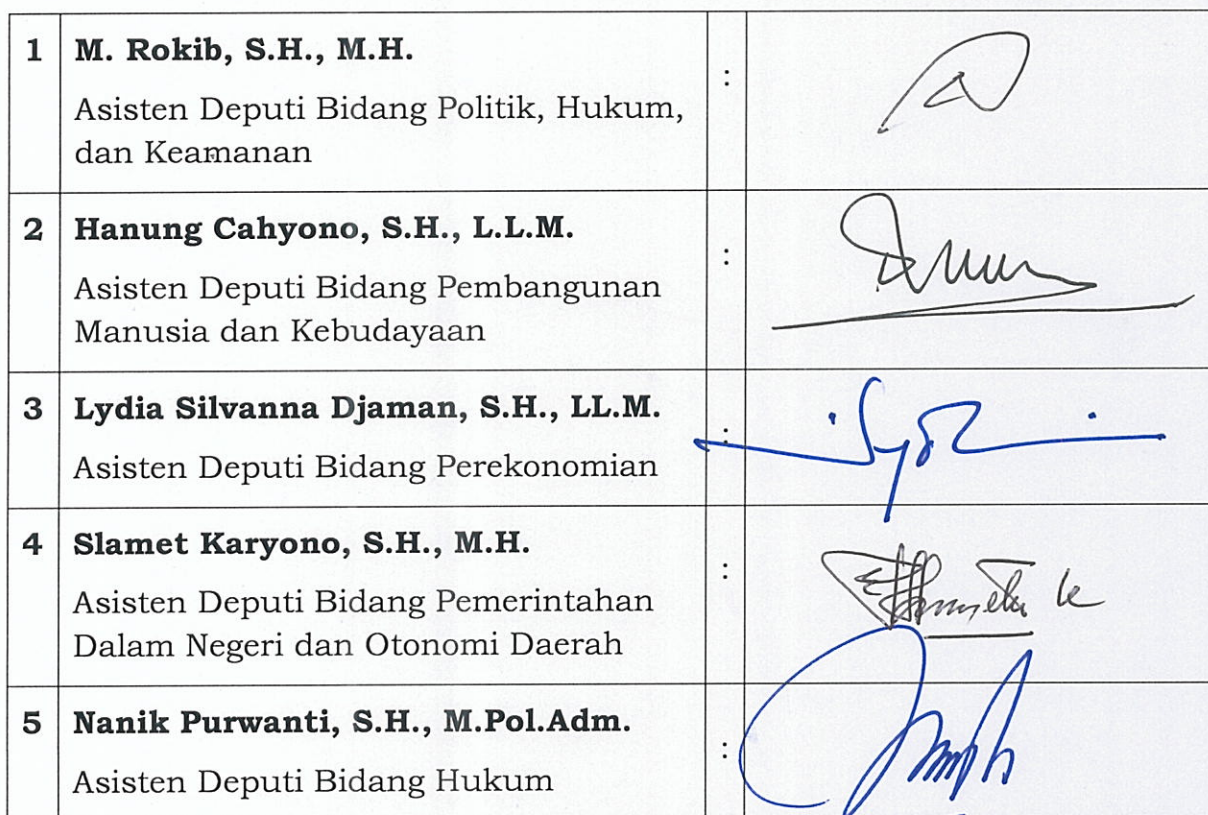 1 M. Rokib, S.H., M.H. :
Asisten Deputi Bidang Politik, Hukum,
dan Keamanan
2 Hanung Cahyono, S.H., L.L.M. :
Asisten Deputi Bidang Pembangunan
Manusia dan Kebudayaan
3 Lydia Silvanna Djaman, S.H., LL.M. :
Asisten Deputi Bidang Perekonomian
4 Slamet Karyono, S.H., M.H. :
Asisten Deputi Bidang Pemerintahan
Dalam Negeri dan Otonomi Daerah
5 Nanik Purwanti, S.H., M.Pol.Adm. :
Asisten Deputi Bidang Hukum